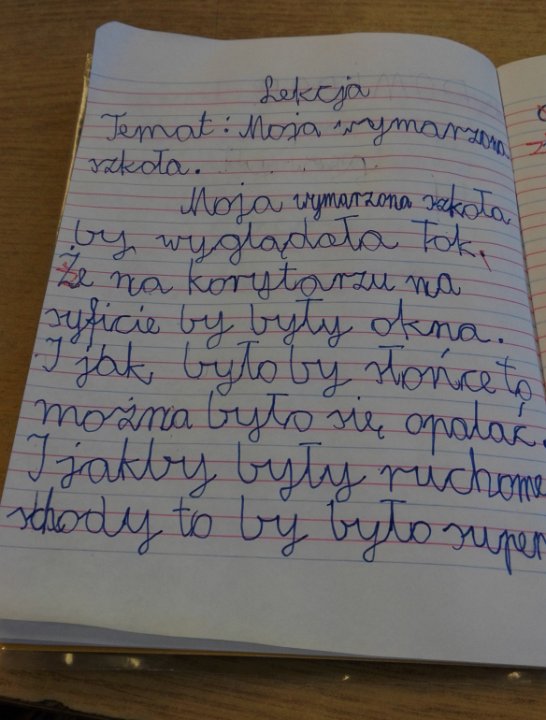 Lekcja
Temat: Moja wymarzona
szkoła.
Moja wymarzona szkoła
by wyglądała tak,
Że na korytarzu na
syficie by były okna.
I jak byłoby słońce to
można było się opalać.
I jakby były ruchome
schody to by było super